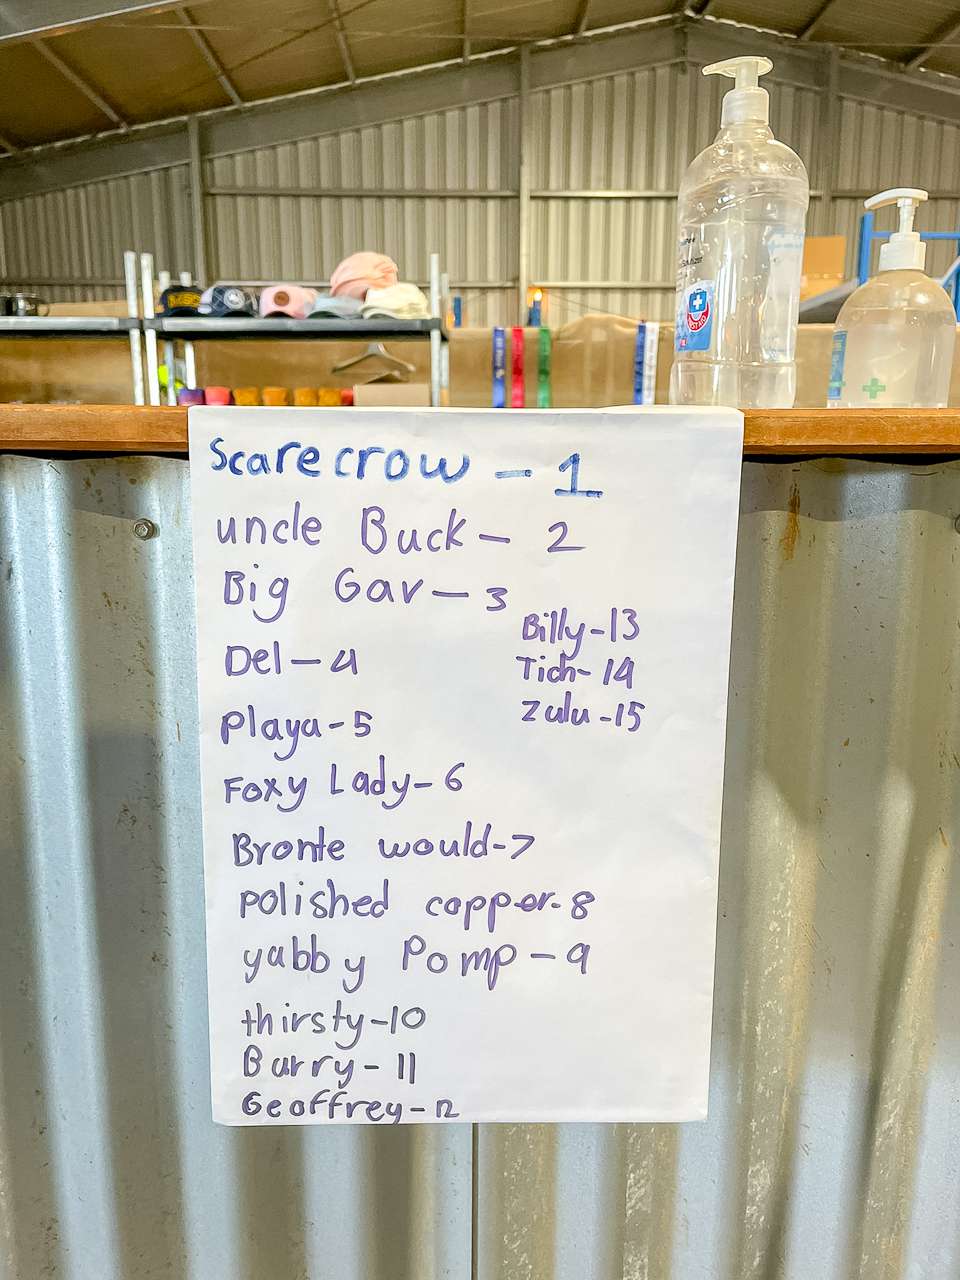 Scarecrow - 1
uncle Buck - 2
Big Gav - 3
Del - 4
Playa - 5
Foxy Lady - 6
Bronte would - 7
polished copper - 8
yabby Pomp - 9
thirsty - 10
Barry - 11
Geoffrey - 12
Billy - 13
Tich - 14
Zulu - 15